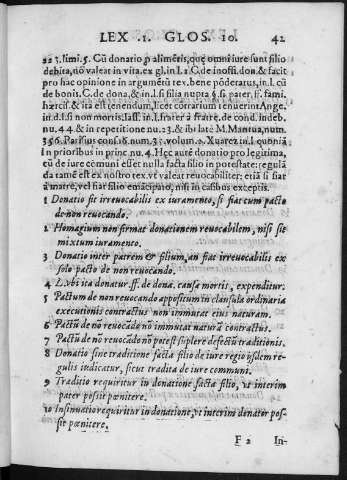 LEX .1. GLOS. 10. 42
223. limi. 5. Cū donatio p̱ alimētis, que omni iure sunt filio
debita, nō valeat in vita. ex gl. in l. 2 C. de inoffi. don. & facit
pro hac opinione in argumētū tex. bene pōderatus, in l. cū
de bonis. C. de dona. & in l. si filia nupta §. si pater. ff. fami.
hercis. & ita est tenendum, licet contrarium tenuerint Ange.
in d. l. si non mortis. Iass. in l. frater à fratre. de cond. indeb.
nu. 44. & in repetitione nu. 23. & ibi latè M. Mantua, num.
356. Parisius consi 18. num. 3. volum. 2. Xuarez in l. quoniā
In prioribus in princ. nu. 4. Hęc autē donatio pro legitima,
cū de iure cemuni esset nulla facta filio in potestate: regulā
da tamē est ex nostro tex. vt valeat reuocabiliter; etiā si fiat
à matre, vel fiat filio emācipato, nisi in casibus exceptis.
1 Donatio fit irreuocabilis ex iuramento, si fiat cum pacto
de non reuocando.
2 Homagium non firmat donationem reuocabilem, nisi sit
mixtum iuramento.
3 Donatio inter patrem & filium, an fiat irreuocabilis ex
solo pacto de non reuocando.
4 L. vbi ita donatur ff. de dona. causa mortis, expenditur.
5 Pactum de non reuocando appositum in clausula ordinaria
executionis contractus non immutat eius naturam.
6 Pactū de nō reuocādo nō immutat naturā contractus.
7 Pactū de nō reuocādo nō potest supplere defectū traditionis.
8 Donatio sine traditione facta filio de iure regio ijsdem re-
gulis iudicatur, sicut tradita de iure communi.
9 Traditio requiritur in donatione facta filio, vt interim
pater possit pœnitere.
10 Insinuatio requiritur in donatione, vt interim donator pos-
sit pœnitere.
F 2 In-